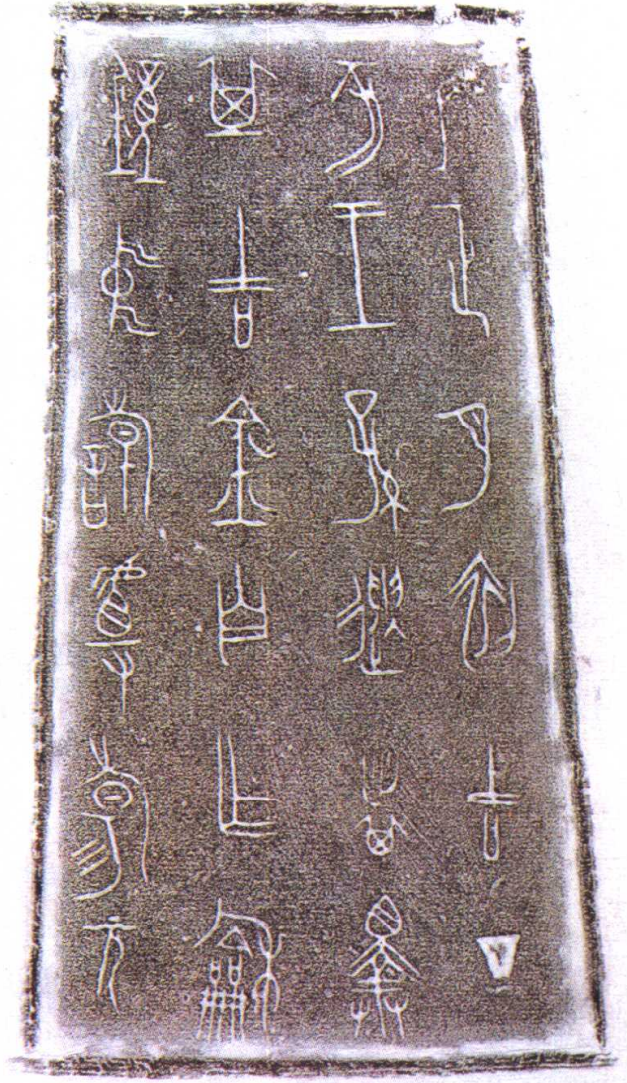 隹正月初吉丁
亥王孫遺者擇
其吉金自乍龢
鐘中翰𠭯鍚元